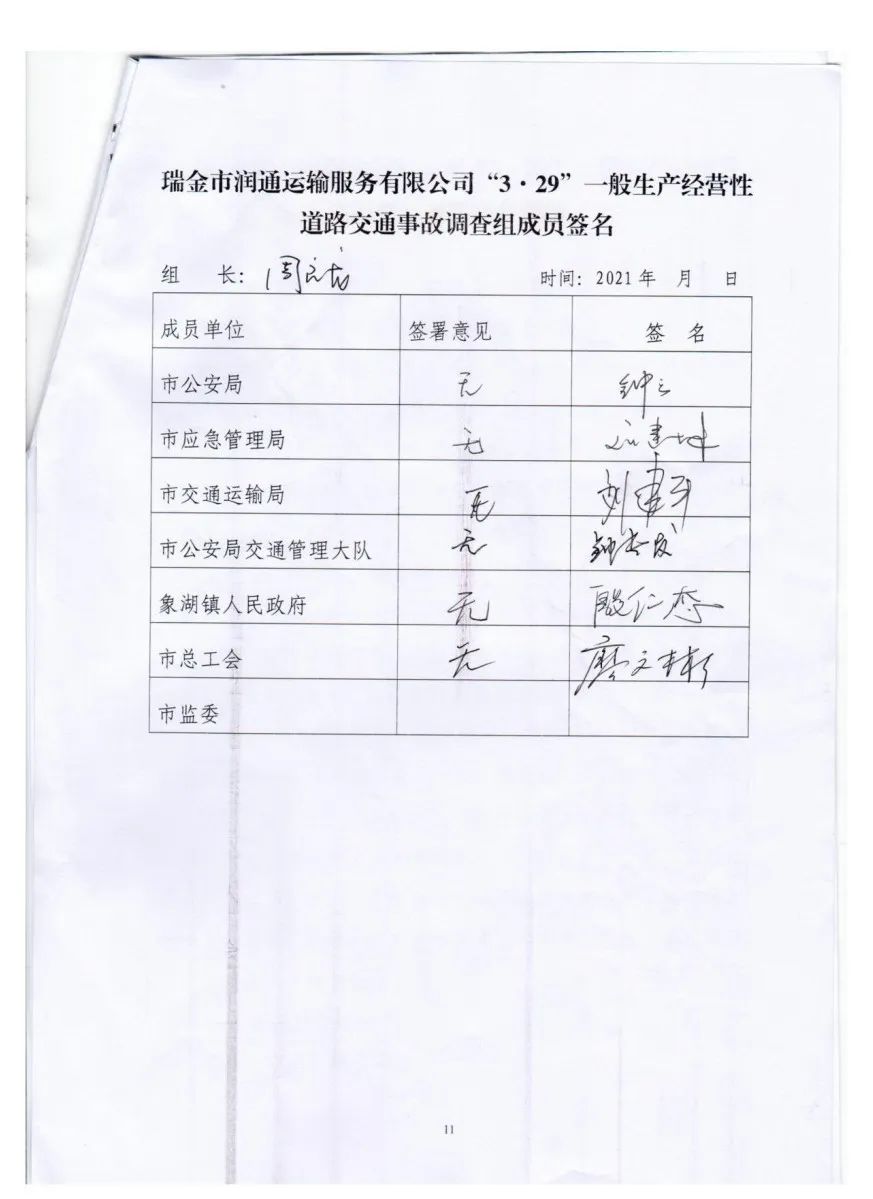 瑞金市润通运输服务有限公司“3·29”一般生产经营性
道路交通事故调查组成员签名
组 长: 时间: 2021年 月 日
成员单位 签署意见 签 名
市公安局 无
市应急管理局 无
市交通运输局 无 刘建平
市公安局交通管理大队 无
象湖镇人民政府 无
市总工会 无 廖文彬
市监委
11